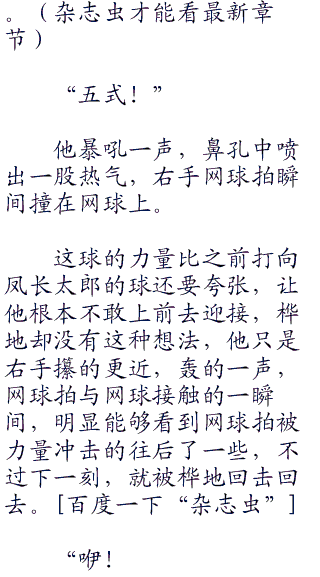 。（杂志虫才能看最新章
节）
“五式！”
他暴吼一声，鼻孔中喷
出一股热气，右手网球拍瞬
间撞在网球上。
这球的力量比之前打向
凤长太郎的球还要夸张，让
他根本不敢上前去迎接，桦
地却没有这种想法，他只是
右手攥的更近，轰的一声，
网球拍与网球接触的一瞬
间，明显能够看到网球拍被
力量冲击的往后了一些，不
过下一刻，就被桦地回击回
去。[百度一下“杂志虫”]
“咿！